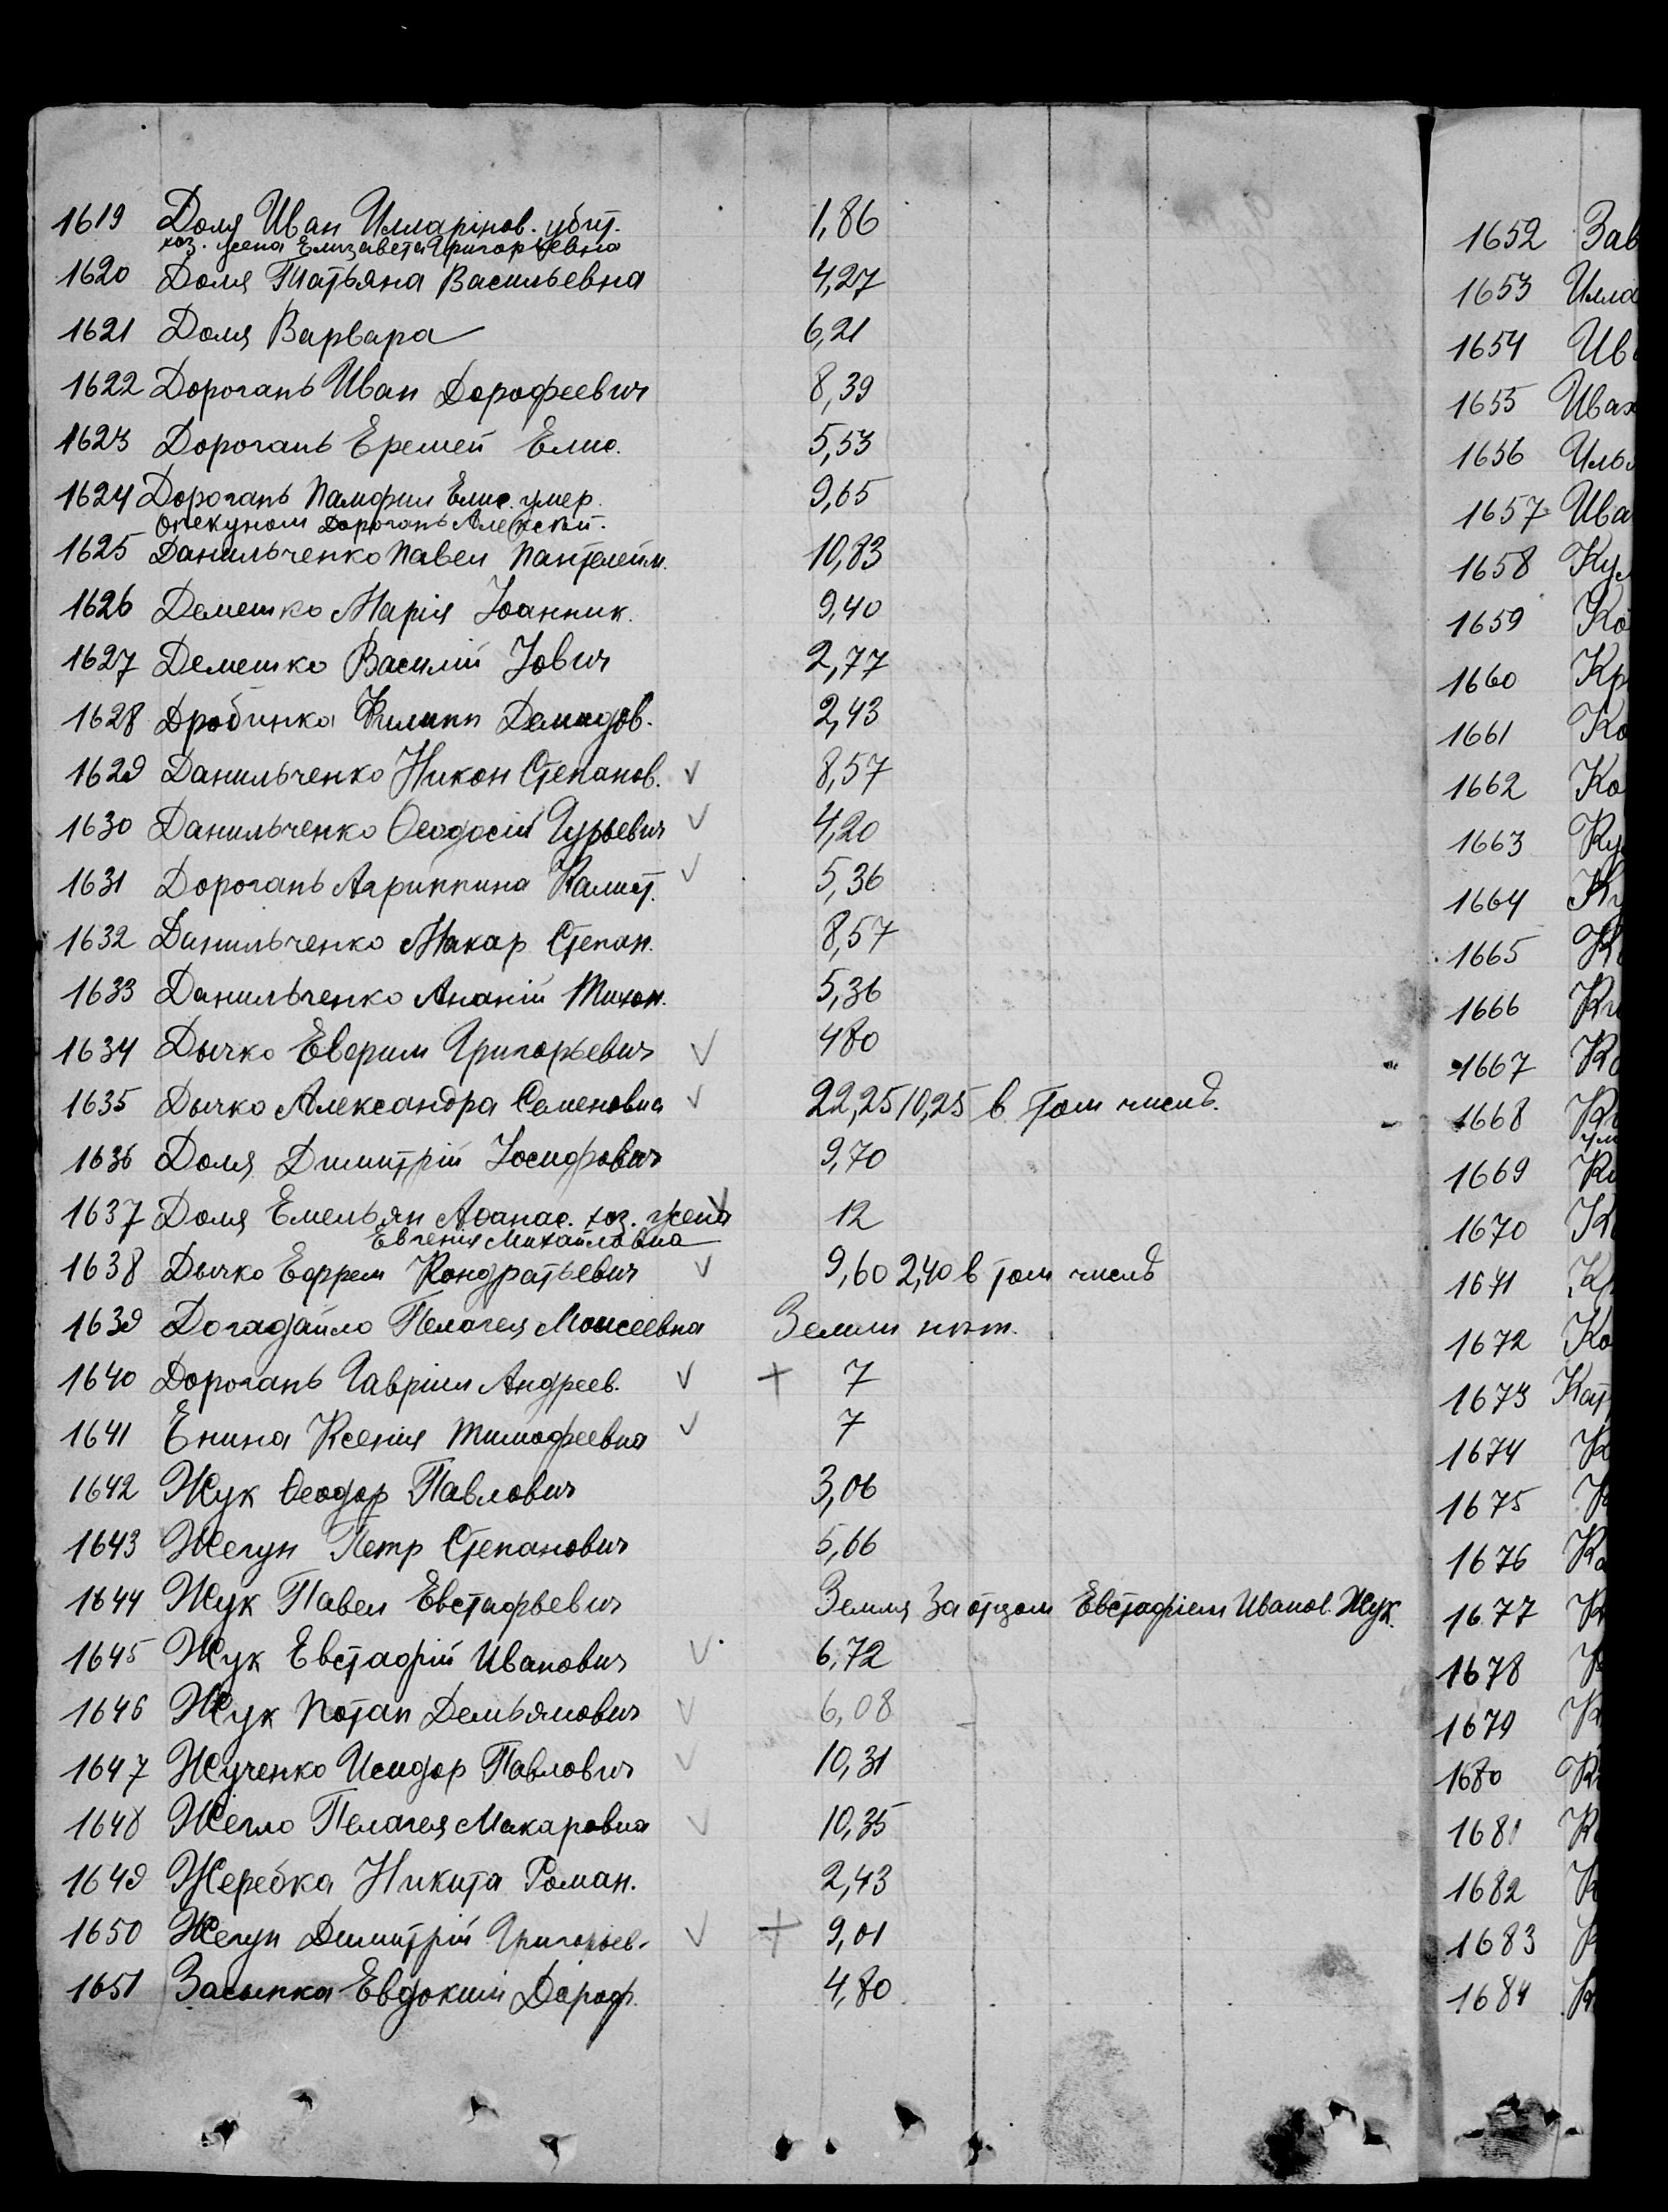 1619 Доля Иван Илларiнов. убит.
хоз. жена Елизавета Григорьевна
1,86
1620 Доля Татьяна Васильевна 4,27
1621 Доля Варвара 6,21
1622 Дорогань Иван Дорофеевич 8,39
1623 Дорогань Еремей Елис. 5,53
1624 Дорогань Памфил Елис. умер. 9,65
Опекуном Дорогань Алексей.
1625 Данильченко Павел Пантелейм. 10,83
1626 Демешко Марiя Iоанник. 9,40
1627 Демешко Василiй Iович 2,77
1628 Дробинка Филипп Демидов. 2,43
1629 Данильченко Никон Степанов. V 8,57
1630 Данильченко Ѳеодосiй Гурьевич V 4,20
1631 Дорогань Агриппина Калист. V 5,36
1632 Данильченко Макар Степан. 8,57
1633 Данильченко Ананiй Тихон. 5,36
1634 Дычко Еверим Григорьевич V 480
1635 Дычко Александра Семеновна V 22,25 10,25 в том числѣ.
1636 Доля Димитрiй Iосифович 9,70
1637 Доля Емельян Аѳанас. хоз. жена V 12
Евгенiя Михайловна
1638 Дычко Ефрем Кондратьевич V 9,60 2,40 в том числѣ
1639 Догадайло Пелагея Моисеевна Земли нѣт.
1640 Дорогань Гаврiил Андреев. V + 7
1641 Енина Ксенiя Тимофеевна V 7
1642 Жук Ѳеодор Павлович 3,06
1643 Жегун Петр Степанович 5,66
1644 Жук Павел Евстафьевич Земля за отцом Евстафiем Иванов. Жук.
1645 Жук Евстафiй Иванович V 6,72
1646 Жук Потап Демьянович V 6,08
1647 Жученко Исидор Павлович V 10,31
1648 Жегло Пелагея Макаровна V 10,35
1649 Жеребка Никита Роман. 2,43
1650 Жегун Димитрiй Григорьев. V + 9,01
1651 Засыпка Евдоким Дороф. 4,80
1652 Зав
1653 Илла
1654 Ив
1655 Ивах
1656 Илья
1657 Ива
1658 Кул
1659 Ко
1660 Кр
1661 Ко
1662 Ко
1663 Ку
1664
1665
1666
1667 Ко
1668
1669
1670 К
1671
1672 Ко
1673 Кат
1674 К
1675 К
1676 Ка
1677 К
1678 К
1679 К
1680
1681
1682 К
1683
1684 К